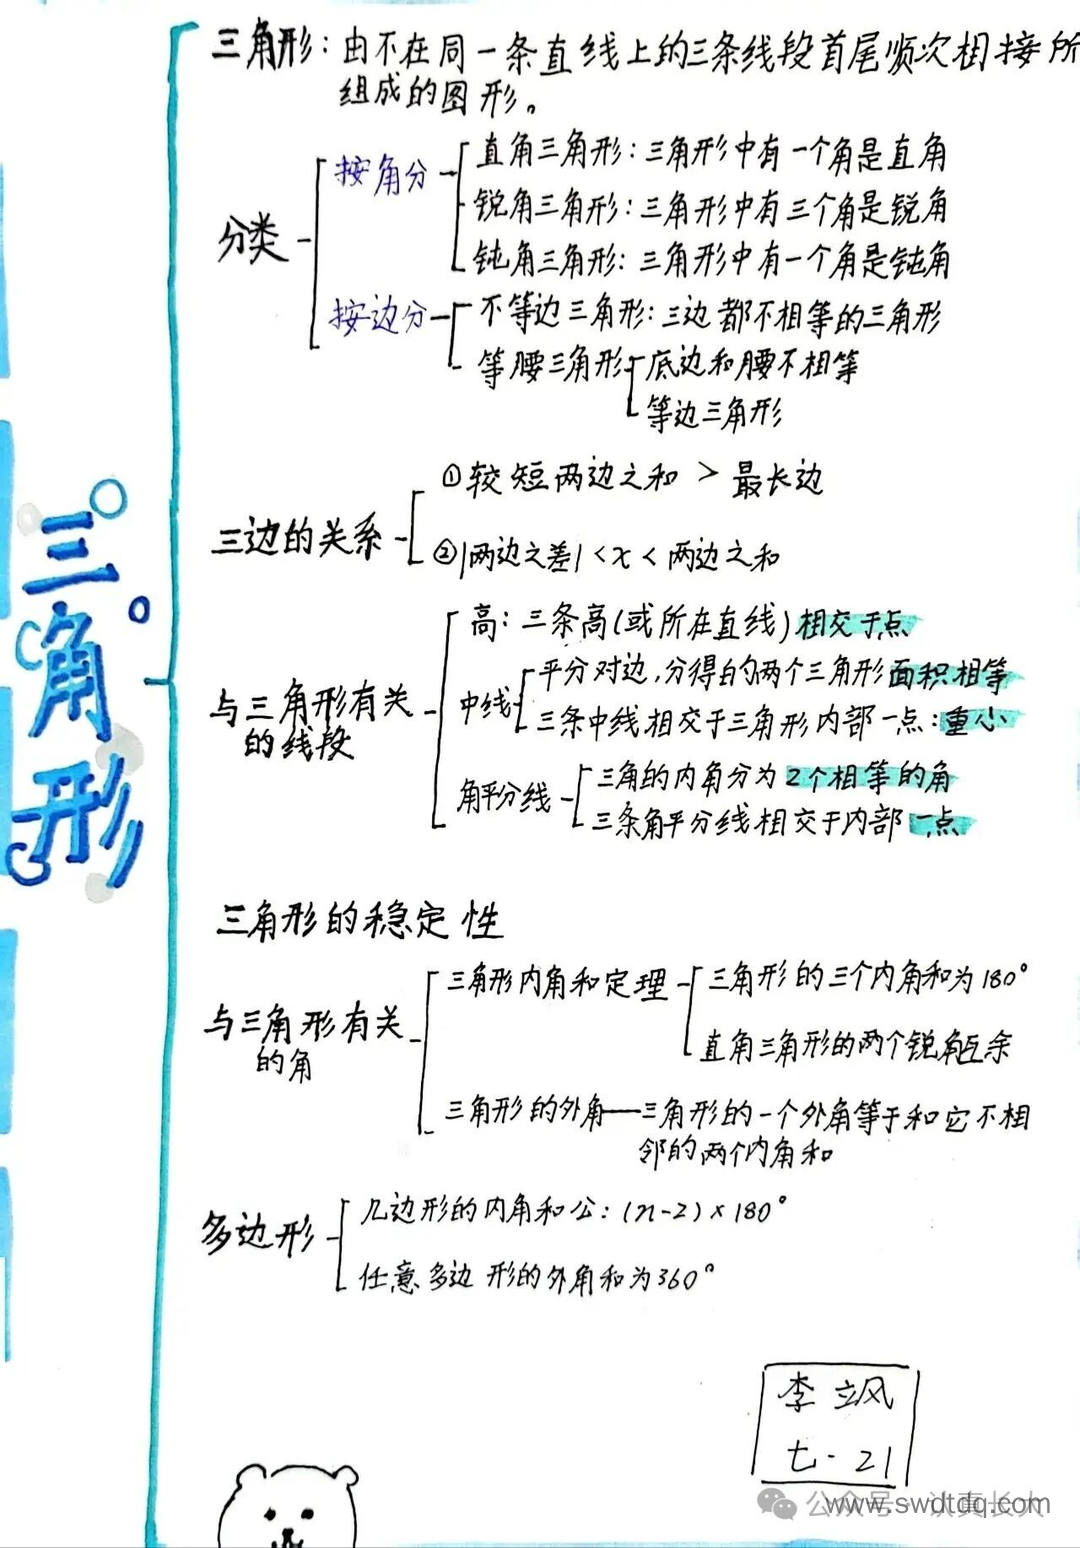 三角形
三角形：由不在同一条直线上的三条线段首尾顺次相接所
组成的图形。
分类
按角分
直角三角形：三角形中有一个角是直角
锐角三角形：三角形中有三个角是锐角
钝角三角形：三角形中有一个角是钝角
按边分
不等边三角形：三边都不相等的三角形
等腰三角形
底边和腰不相等
等边三角形
三边的关系
①较短两边之和 > 最长边
②|两边之差| < x < 两边之和
与三角形有关
的线段
高：三条高(或所在直线)相交于点
中线
平分对边,分得的两个三角形面积相等
三条中线相交于三角形内部一点：重心
角平分线
三角的内角分为2个相等的角
三条角平分线相交于内部一点
三角形的稳定性
与三角形有关
的角
三角形内角和定理
三角形的三个内角和为180°
直角三角形的两个锐角互余
三角形的外角
三角形的一个外角等于和它不相
邻的两个内角和
多边形
几边形的内角和公：(n-2)×180°
任意多边形的外角和为360°
李立风
七·21
公众号
www.swdtdq.com